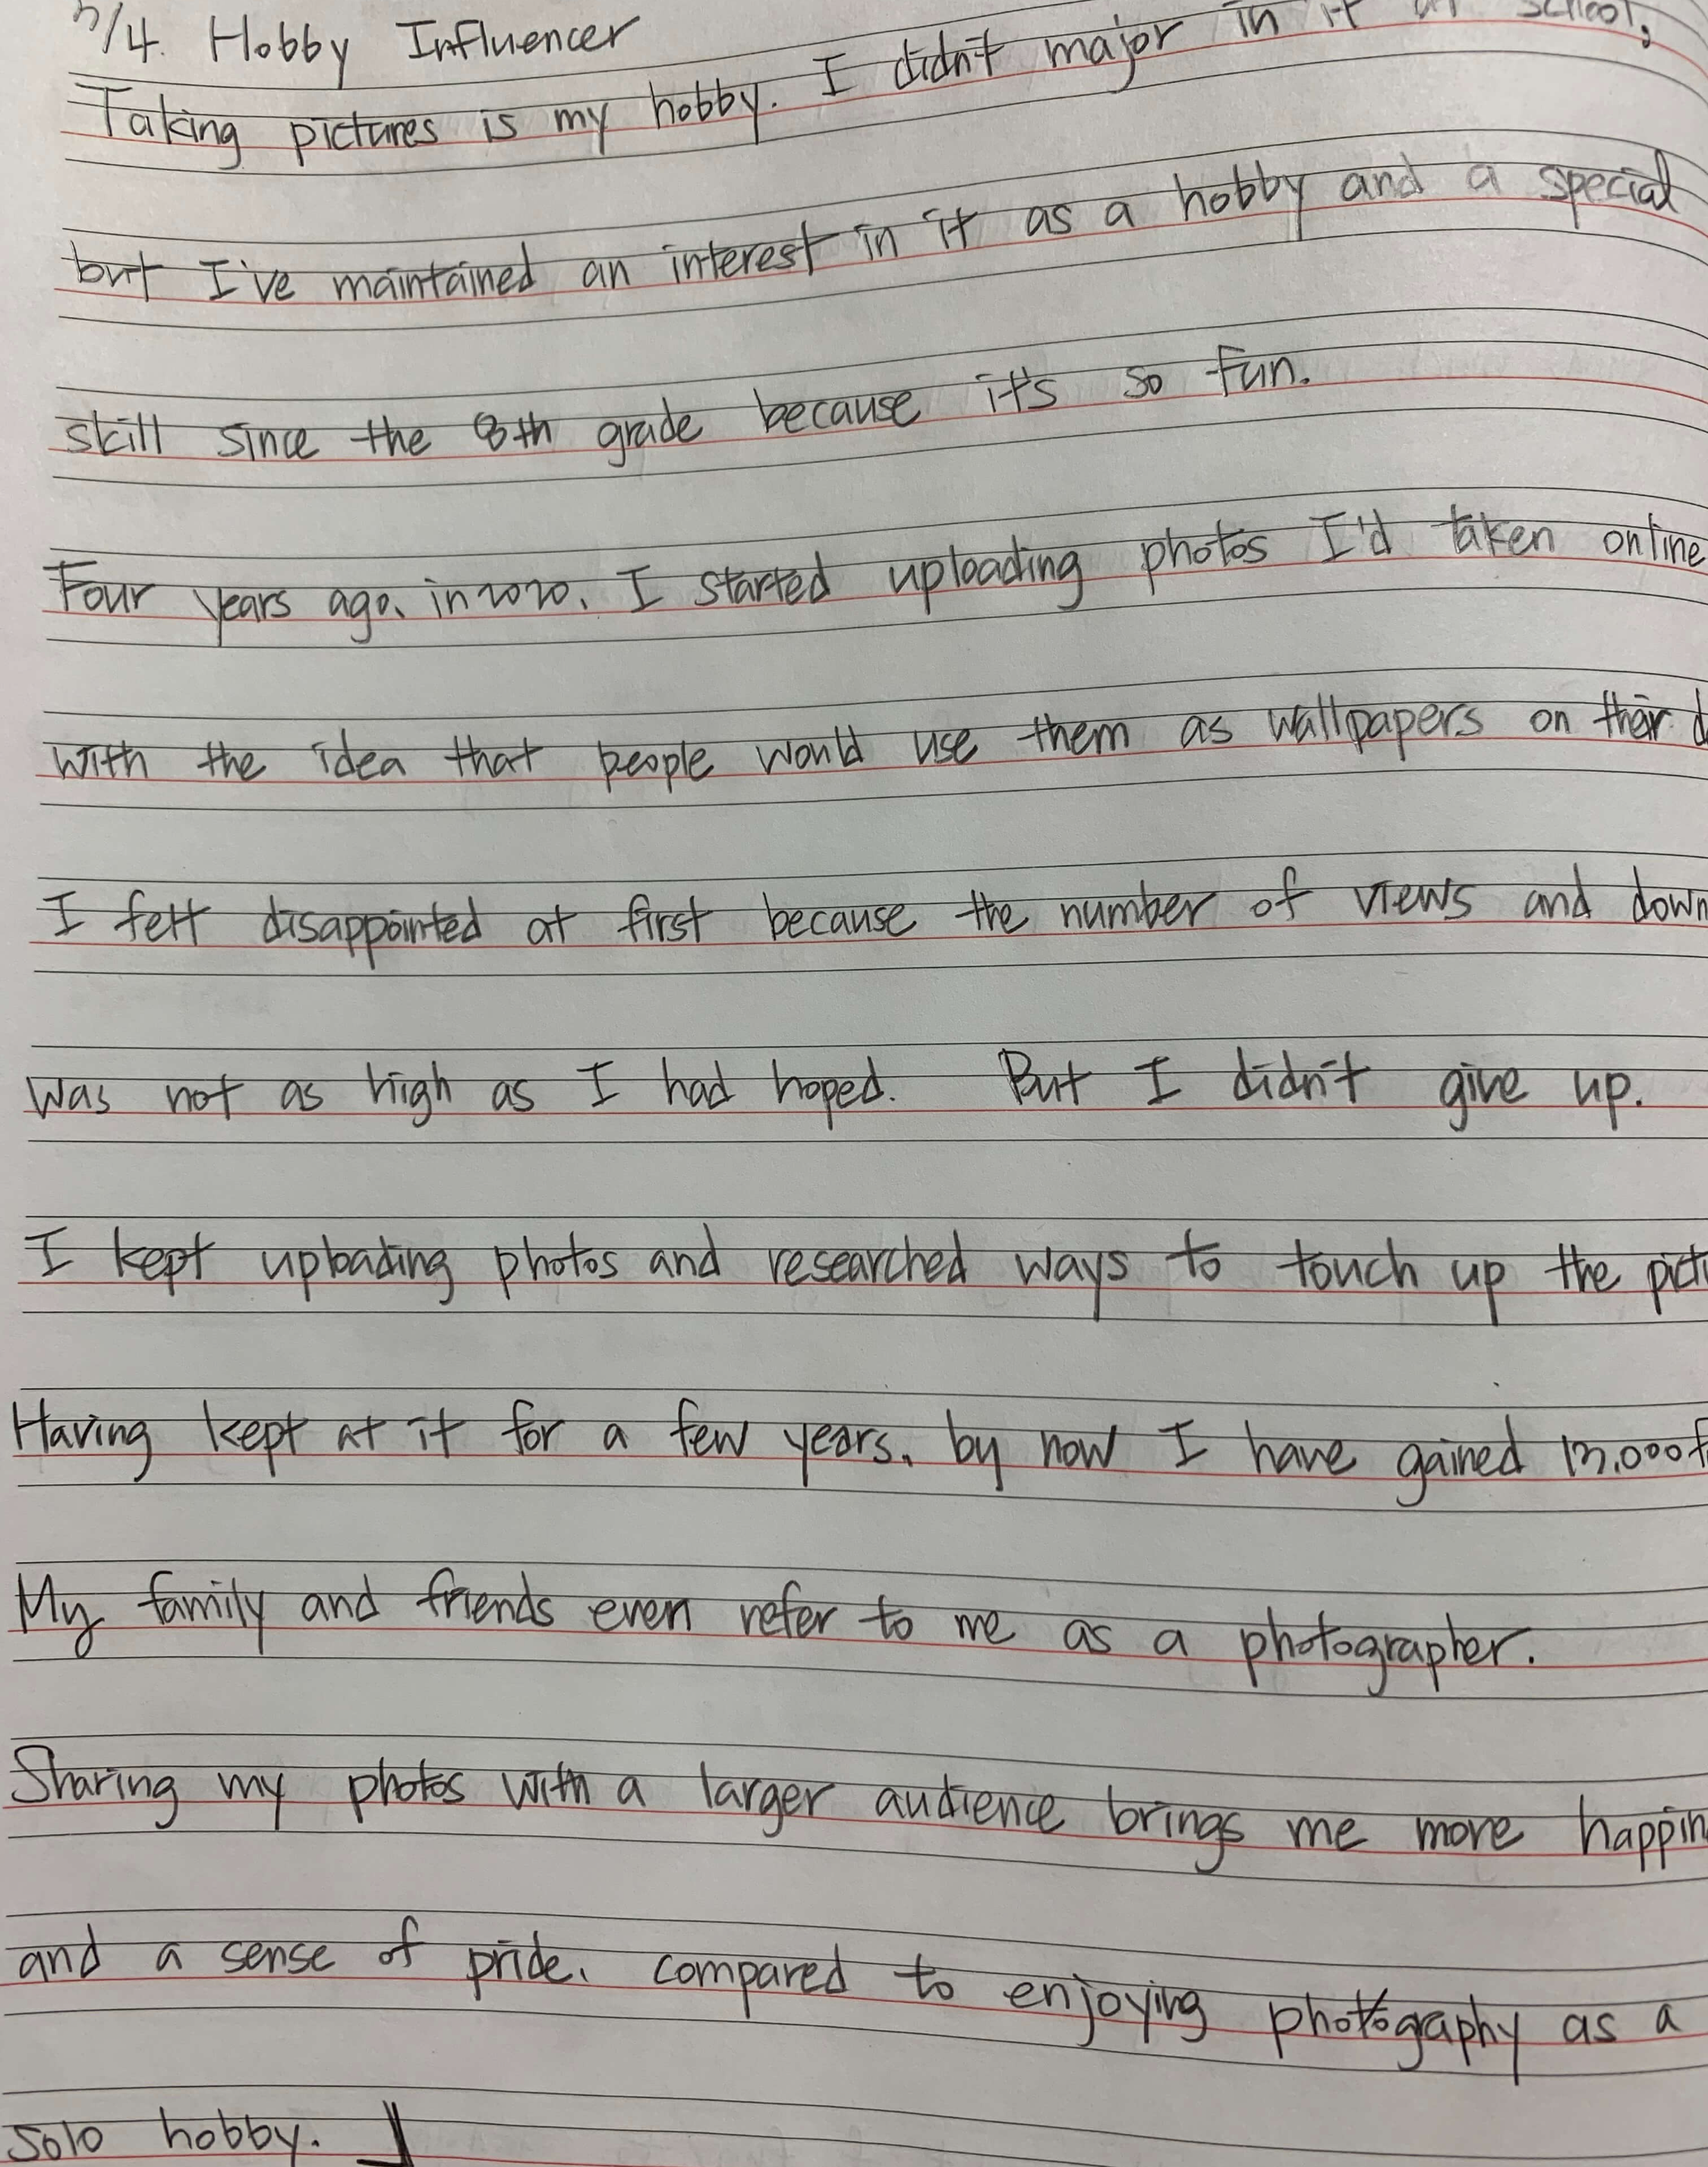 5/4. Hobby Influencer
Taking pictures is my hobby. I didn't major in it at school,
but I've maintained an interest in it as a hobby and a special
skill since the 8th grade because it's so fun.
Four years ago, in 2020, I started uploading photos I'd taken online
with the idea that people would use them as wallpapers on their d
I felt disappointed at first because the number of views and down
was not as high as I had hoped. But I didn't give up.
I kept uploading photos and researched ways to touch up the pict
Having kept at it for a few years, by now I have gained 13,000 f
My family and friends even refer to me as a photographer.
Sharing my photos with a larger audience brings me more happin
and a sense of pride, compared to enjoying photography as a
solo hobby.